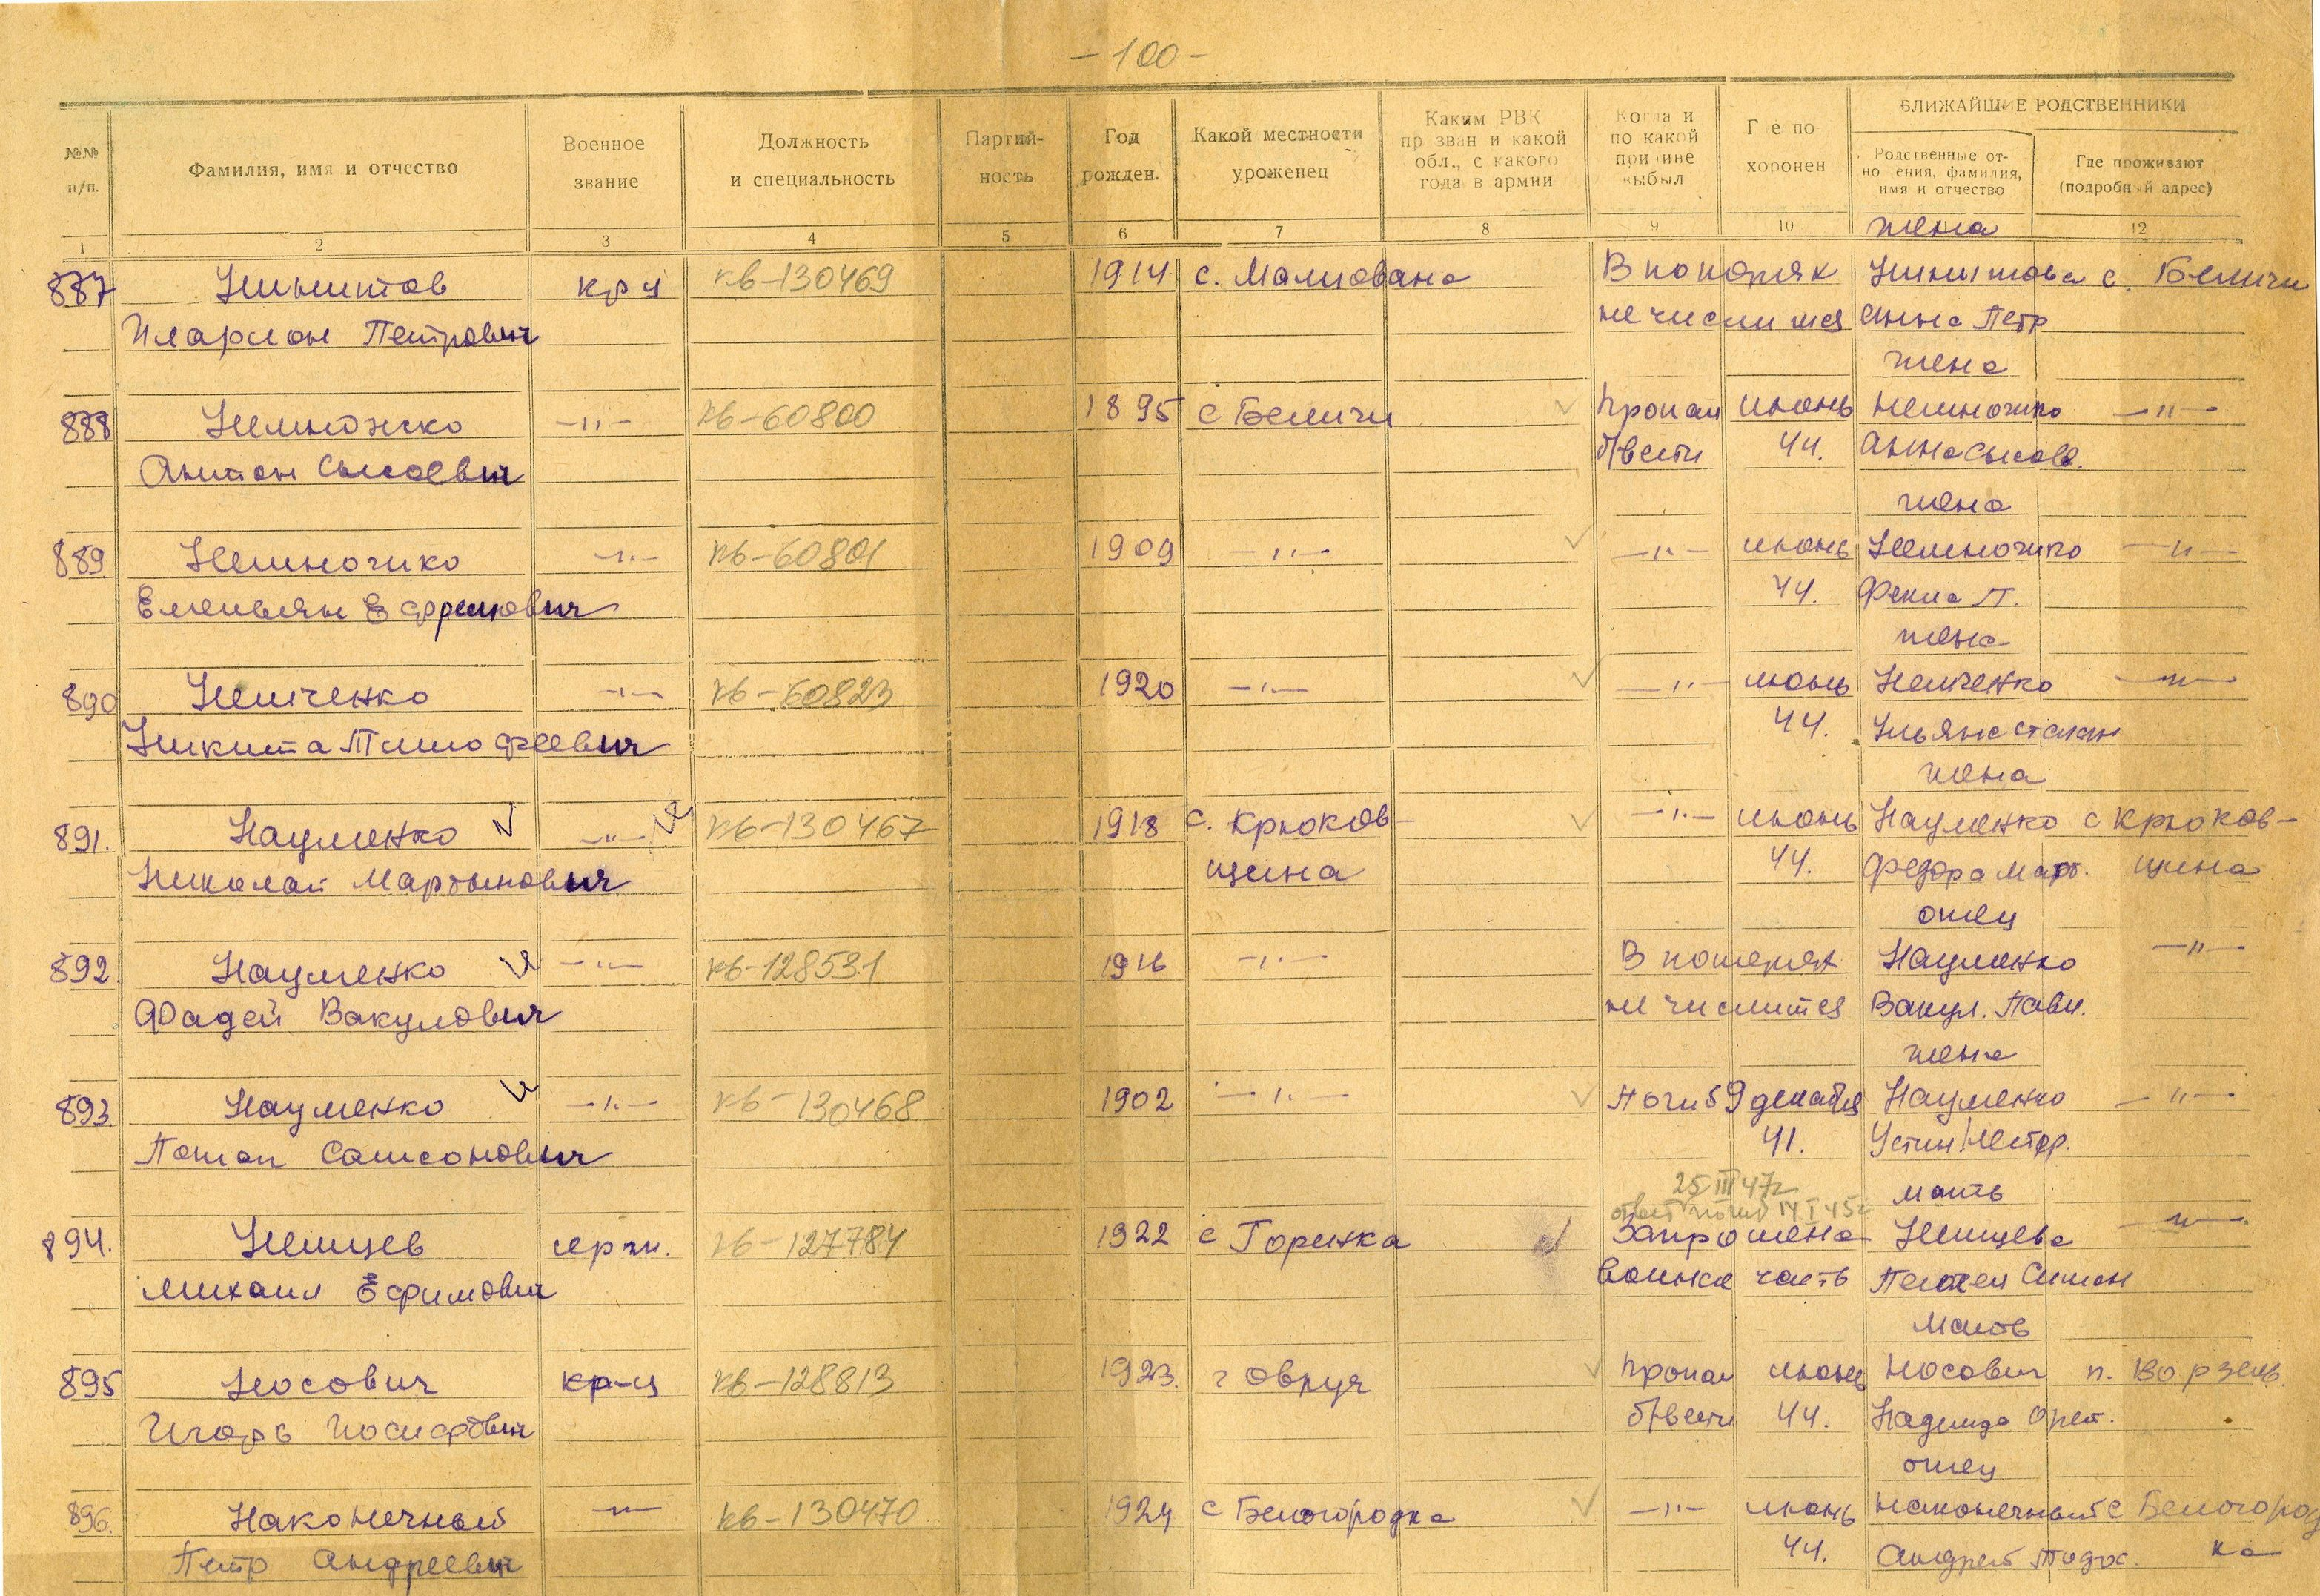 - 100 -
№№ п/п.
Фамилия, имя и отчество
Военное звание
Должность и специальность
Партий- ность
Год рожден.
Какой местности уроженец
Каким РВК пр зван и какой обл., с какого года в армии
Когда и по какой причине выбыл
Г е по- хоронен
БЛИЖАЙШИЕ РОДСТВЕННИКИ
Родственные от- но ения, фамилия, имя и отчество
Где проживают (подробный адрес)
1 2 3 4 5 6 7 8 9 10 12
жена
887 кр-ц кв-130469 1914 с. В потерях с. Беличи
Иларион Петрович не числится Анна Петр
жена
888 Неможко -"- кв-60800 1895 с Беличи Пропал июнь -"-
Антон Сысоевич б/вести 44. Анна
жена
889 Немножко -"- кв-60801 1909 -"- -"- июнь Немножко -"-
Емельян Ефремович 44. Фекла П.
жена
890 Немченко -"- кв-60823 1920 -"- -"- июнь Немченко -"-
Никита Тимофеевич 44. Ульяна Степан
жена
891. Науменко -"- кв-130467 1918 с. Крюков- -"- июнь Науменко с Крюков-
Николай Мартынович щина 44. Федора Март. щина
отец
892 Науменко -"- кв-128531 1916 -"- В потерях Науменко -"-
Фадей Вакулович не числится Вакул. Павл.
жена
893. Науменко -"- кв-130468 1902 -"- Погиб 9 декабря Науменко -"-
Потап Самсонович 41. Устин. Нестер.
25 III 47г
ответ 14 I 45г мать
894. Немцев серж. кв-127784 1922 с Горенка Запрошена Немцева -"-
Михаил Ефимович воинская часть Симон
Мать
895 Носович кр-ц кв-128813 1923. г Овруч Пропал июнь Носович п. Ворзель.
Игорь Иосифович б/вести 44. Надежда
отец
896. Наконечный -"- кв-130470 1924 с Белогородка -"- июнь Наконечный с Белогород
Петр Андреевич 44. Андрей Тодос. ка